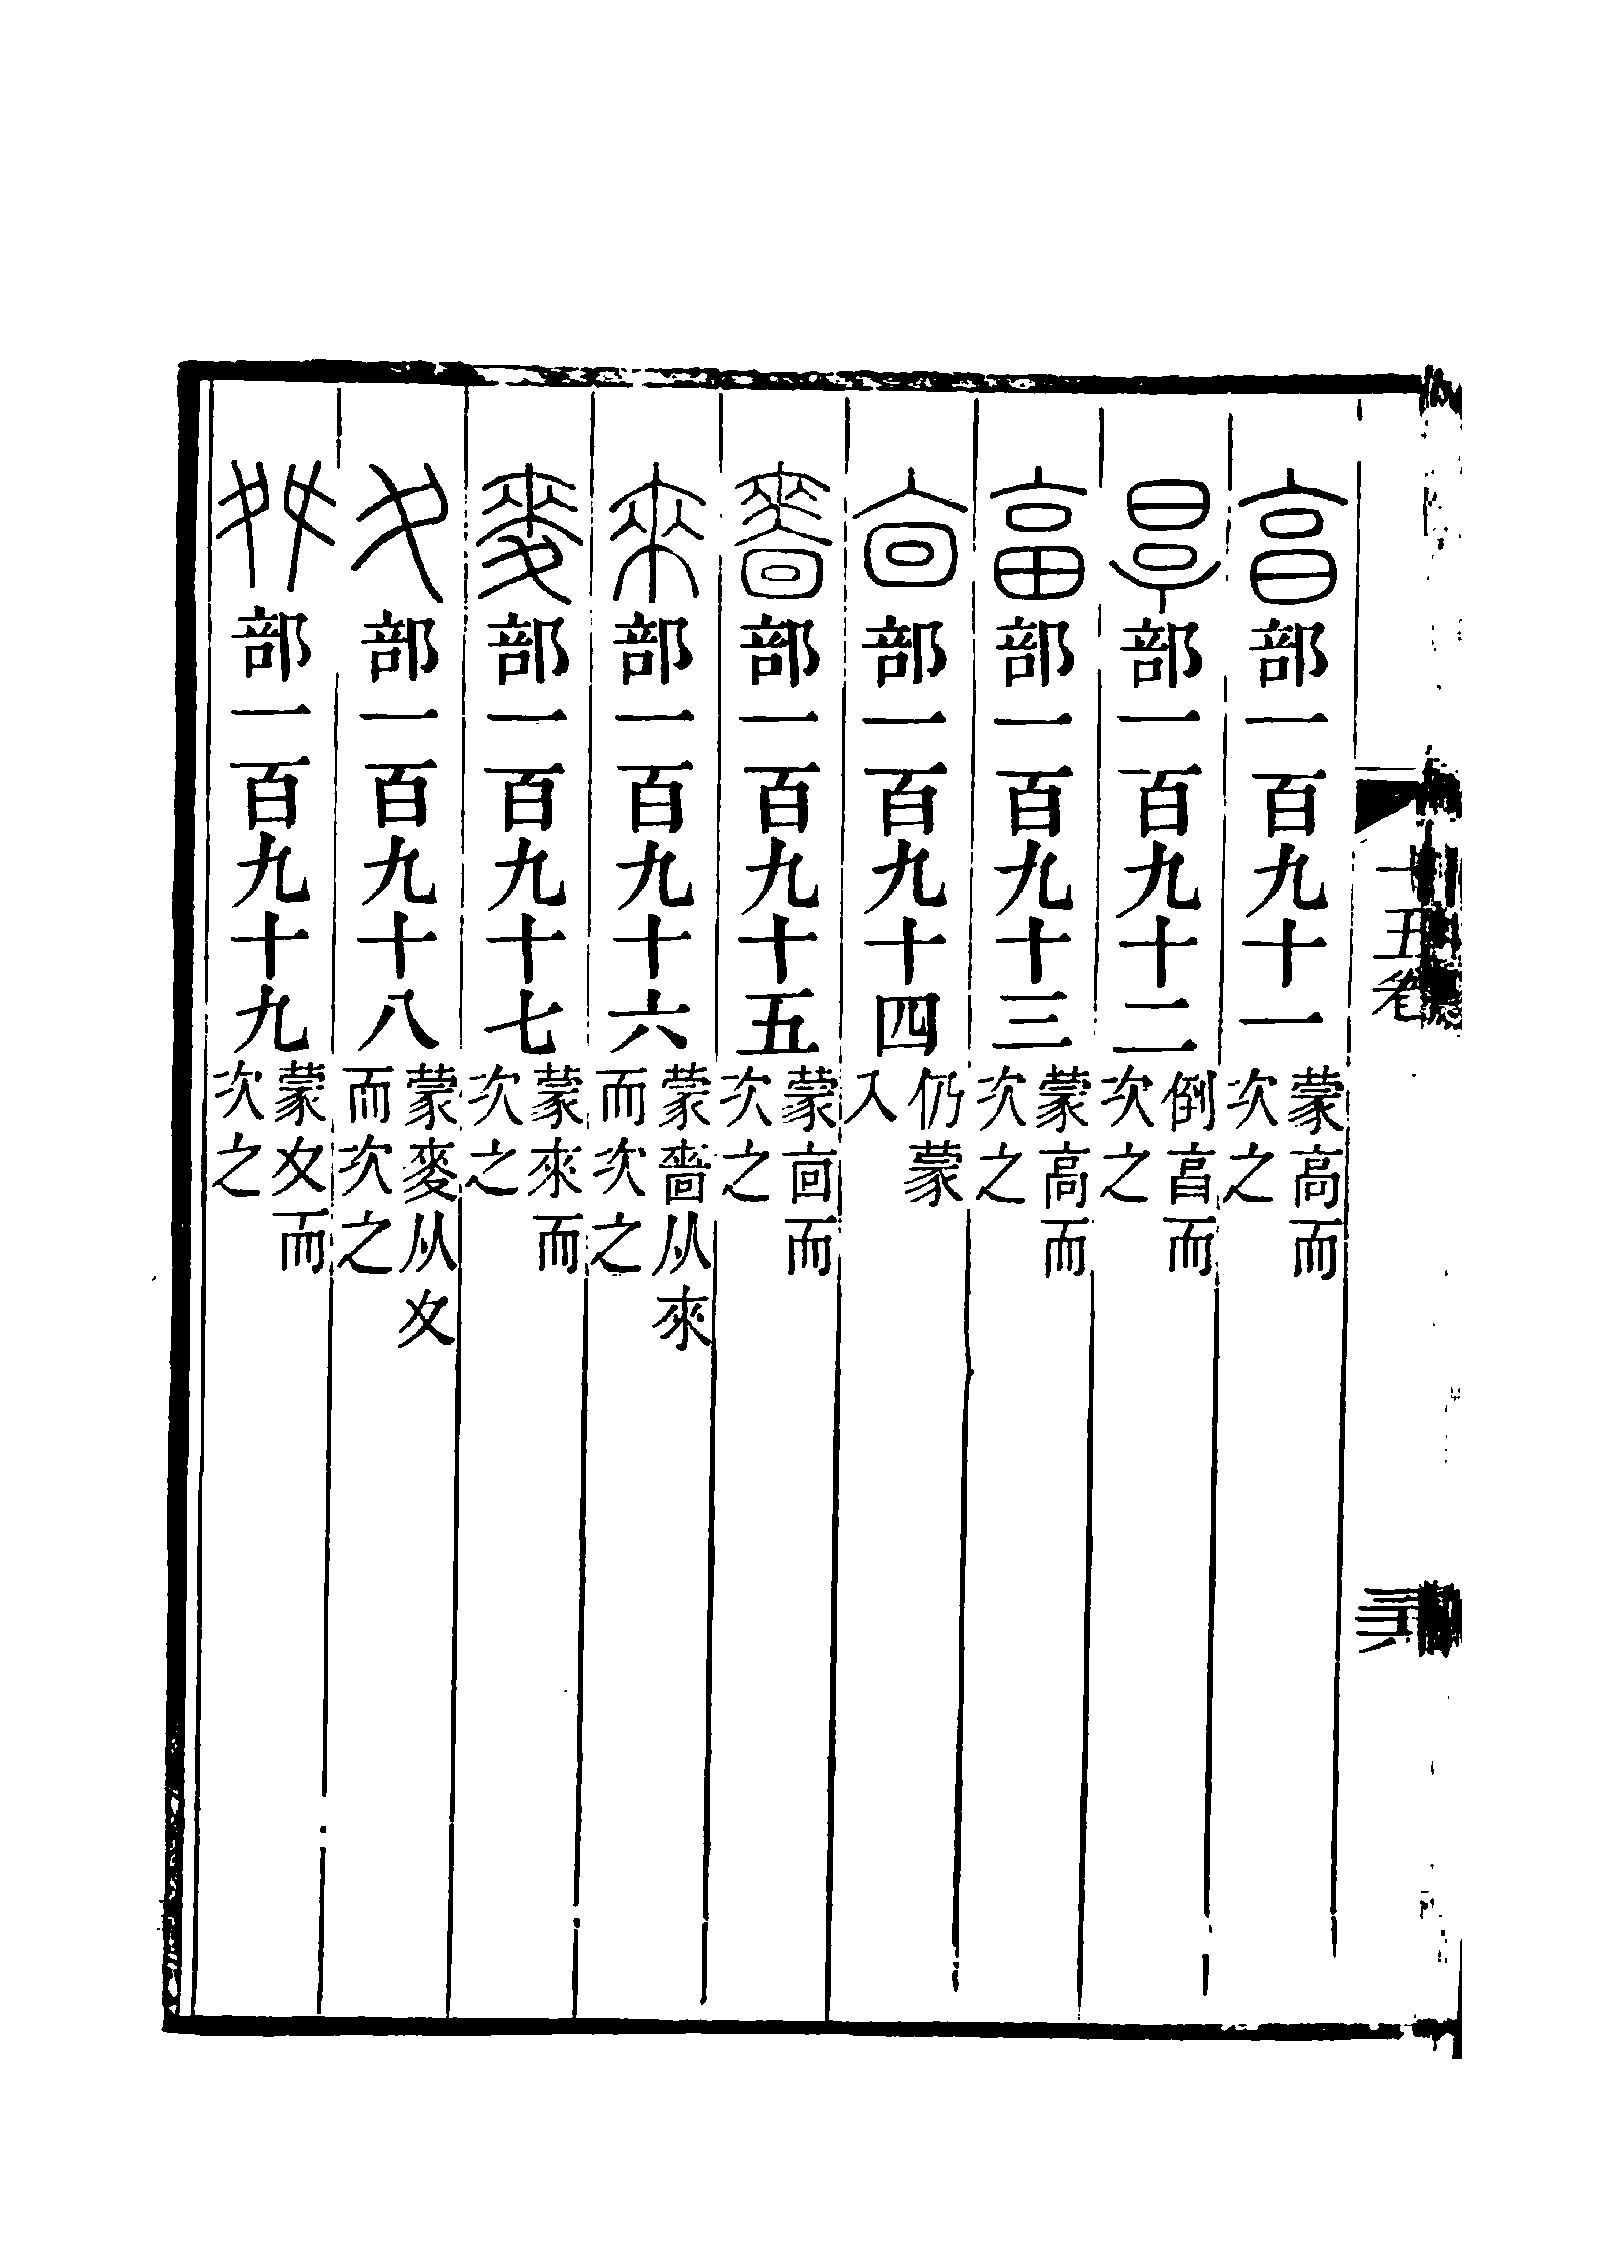 十五卷
亯部一百九十一蒙高而次之
㫗部一百九十二倒亯而次之
畗部一百九十三蒙高而次之
㐭部一百九十四仍蒙入
嗇部一百九十五蒙㐭而次之
來部一百九十六蒙嗇从來而次之
麥部一百九十七蒙來而次之
夊部一百九十八蒙麥从夊而次之
舛部一百九十九蒙夊而次之